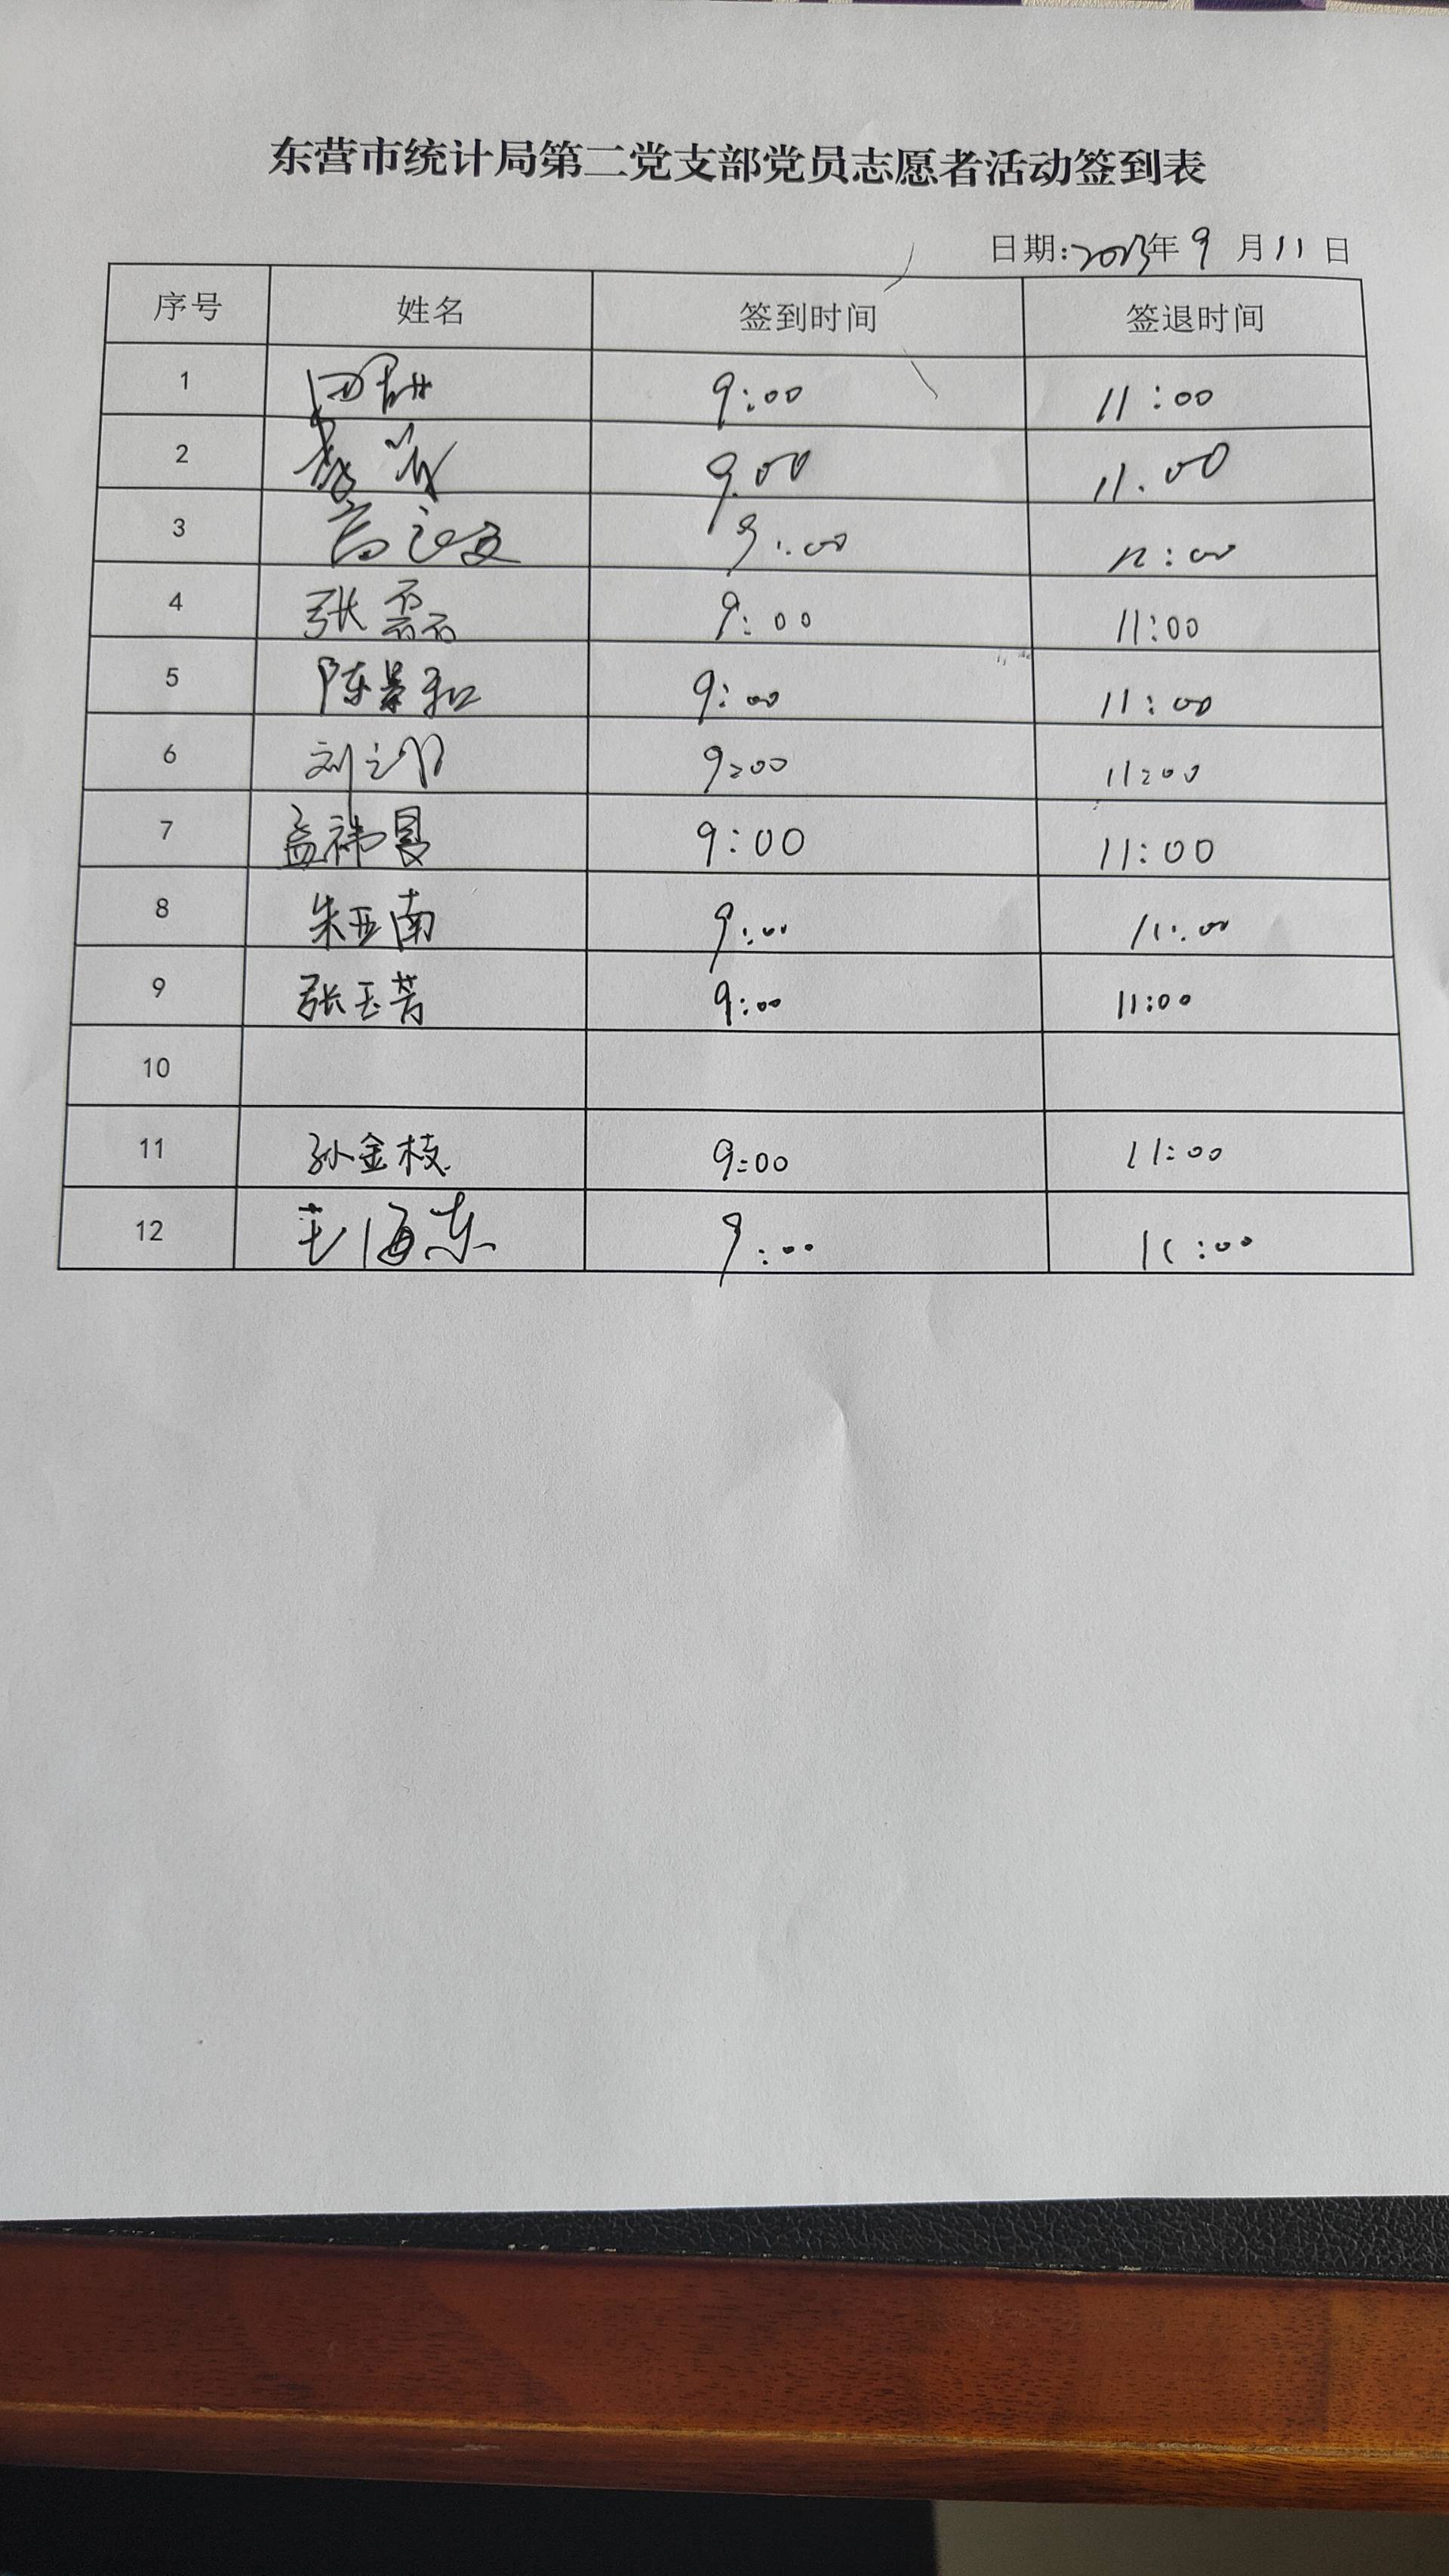 东营市统计局第二党支部党员志愿者活动签到表
日期:2023年9月11日
序号 姓名 签到时间 签退时间
1 9:00 11:00
2 9.00 11.00
3 9:00 :00
4 张磊磊 9:00 11:00
5 陈景和 9:00 11:00
6 刘 9:00 11:00
7 孟祎曼 9:00 11:00
8 朱亚南 9:00 11:00
9 张玉芳 9:00 11:00
10
11 孙金枝 9:00 11:00
12 王海东 9:00 11:00